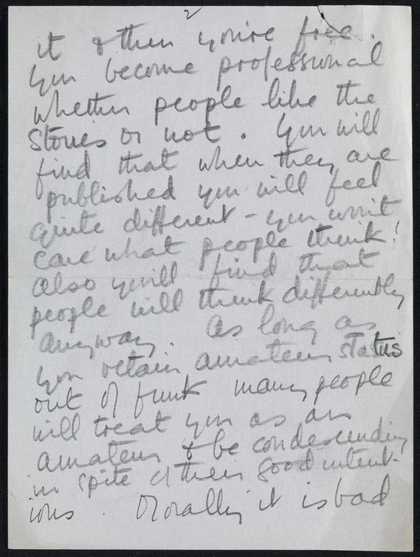 2
it & then you're free.
You become professional
whether people like the
stories or not. You will
find that when they are
published you will feel
quite different - you won't
care what people think!
Also you'll find that
people will think differently
anyway. As long as
you retain amateur status
out of funk many people
will treat you as an
amateur & be condescending
in spite of their good intent-
ions. Morally it is bad